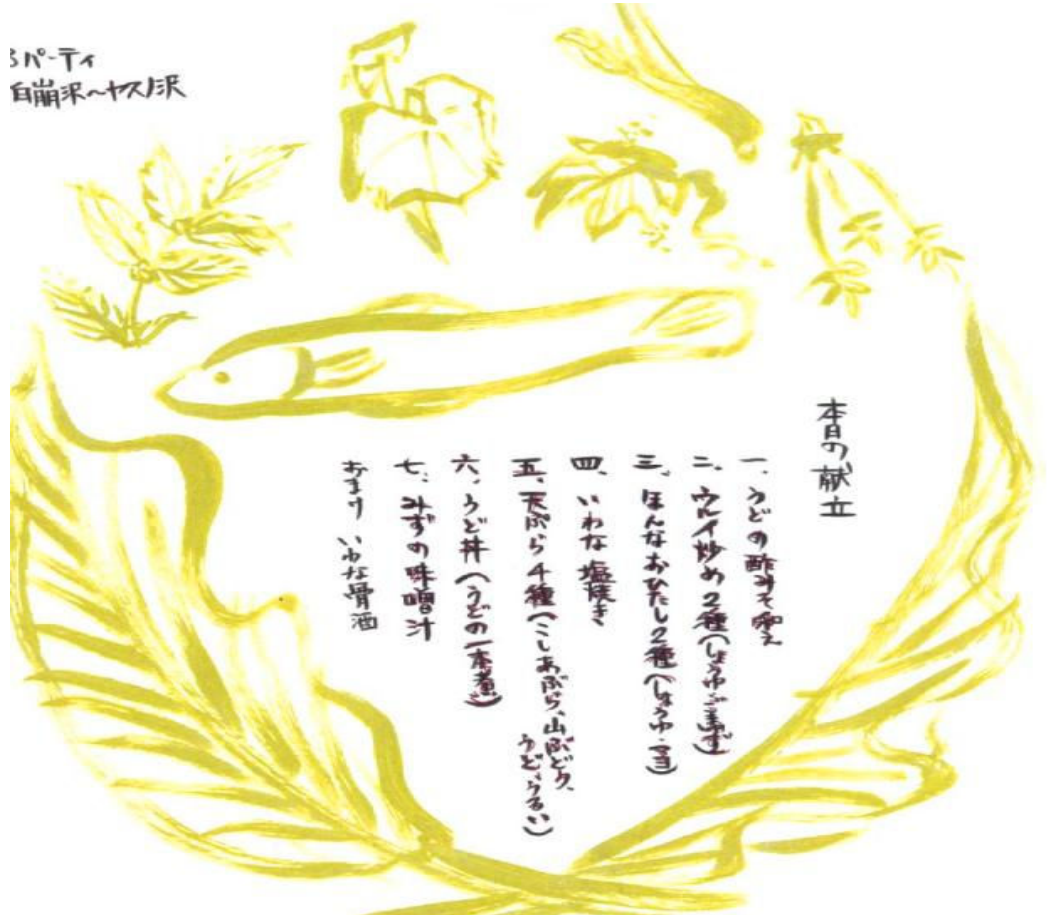 パーティ
白崩沢～ヤスノ沢
本日の献立
一、うどの酢みそ和え
二、ウルイ炒め2種(しょうゆ・ごまず)
三、ほんなおひたし2種(しょうゆ・)
四、いわな塩焼き
五、天ぷら4種(こしあぶら、山ぶどう、
うど、うるい)
六、うど丼(うどの一本煮)
七、みずの味噌汁
おまけ いわな骨酒